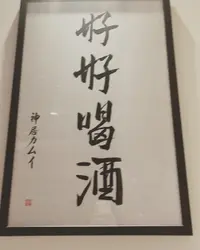 好好喝酒
神居カムイ